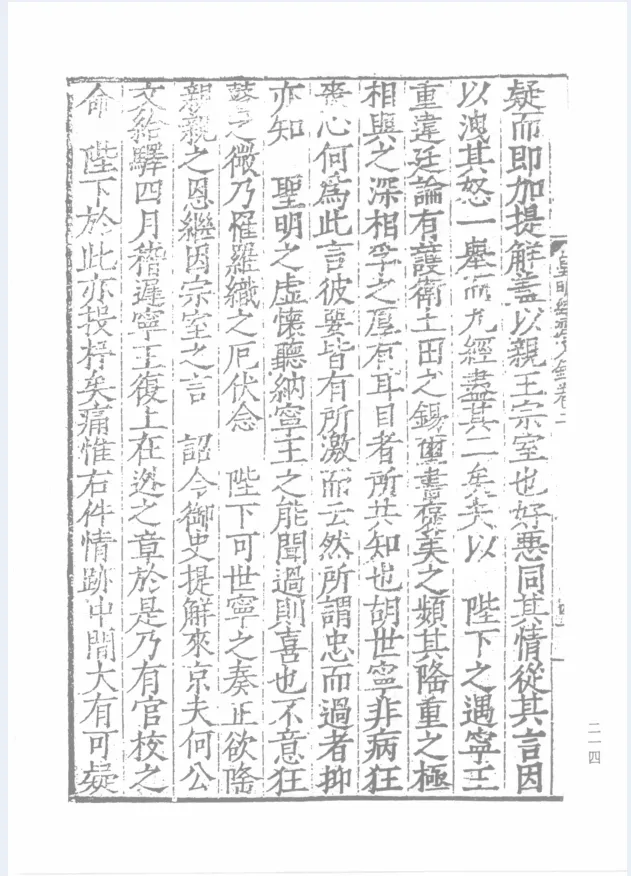 疑而即加提解蓋以親王宗室也好惡同其情從其言因
以洩其怒一舉而九經盡其二矣夫以　陛下之遇寧王
重違廷論有護衛土田之錫璽書褒美之頻其隆重之極
相與之深相孚之厚有耳目者所共知也胡世寧非病狂
喪心何為此言彼要皆有所激而云然所謂忠而過者抑
亦知　聖明之虛懷聽納寧王之能聞過則喜也不意狂
瞽之微乃罹羅織之厄伏念　陛下可世寧之奏正欲隆
親親之恩繼因宗室之言　詔令御史提解來京夫何公
文給驛四月稽遲寧王復上在逃之章於是乃有官校之
命　陛下於此亦投杼矣痛惟右件情跡中間大有可疑
二一四